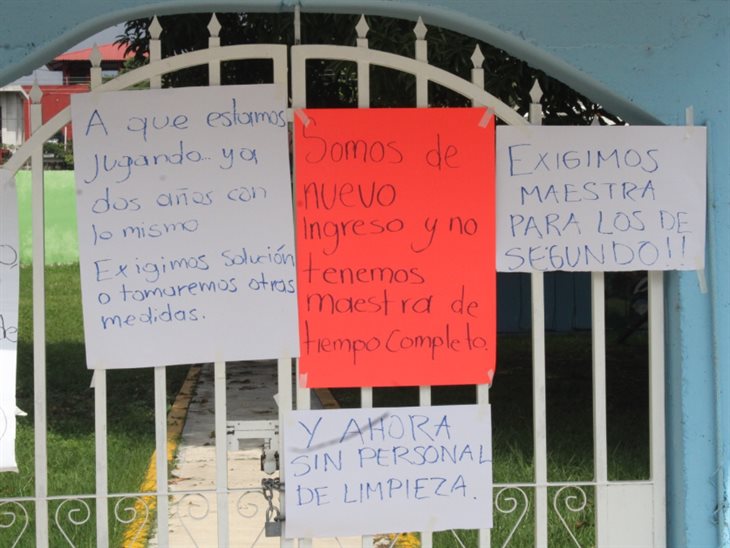 A que estamos
jugando... ya
dos años con
lo mismo
Exigimos solución
o tomaremos otras
medidas.
Somos de
nuevo
Ingreso y no
tenemos
maestra de
tiempo completo.
EXIGIMOS
MAESTRA
PARA LOS DE
SEGUNDO!!
Y AHORA
SIN PERSONAL
DE LIMPIEZA.